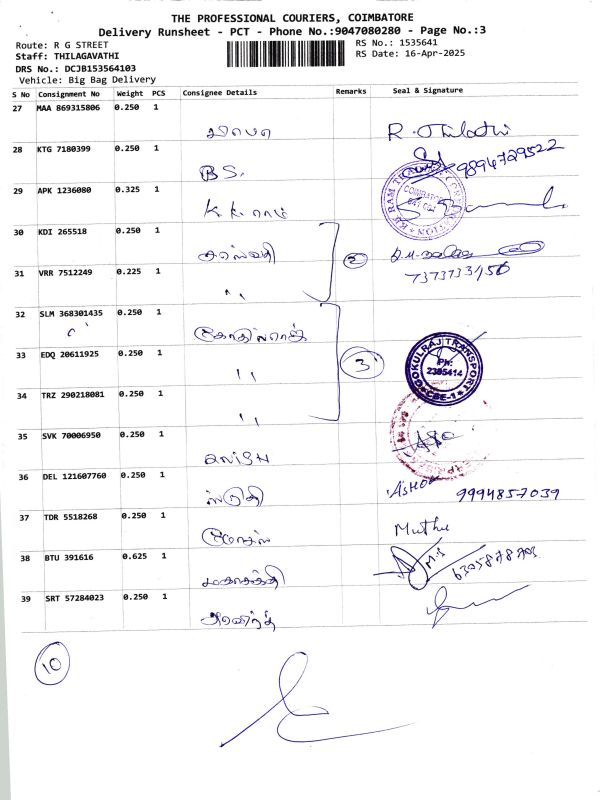 THE PROFESSIONAL COURIERS, COIMBATORE
Delivery Runsheet - PCT - Phone No.:9047080280 - Page No.:3
Route: R G STREET
RS No.: 1535641
Staff: THILAGAVATHI
RS Date: 16-Apr-2025
DRS No.: DCJB153564103
Vehicle: Big Bag Delivery
S No Consignment No Weight PCS Consignee Details Remarks Seal & Signature
27 MAA 869315806 0.250 1
R. Thilothi
28 KTG 7180399 0.250 1
BS. 9894729522
29 APK 1236080 0.325 1
K.K. ராம்
COIMBATORE
30 KDI 265518 0.250 1
சரஸ்வதி 2
31 VRR 7512249 0.225 1
" 7373733450
32 SLM 368301435 0.250 1
கோகுல்ராஜ்
33 EDQ 20611925 0.250 1
" 3 GOKULRAJ TRANSPORT
Ph:
2385414
CBE-1
34 TRZ 290218081 0.250 1
"
35 SVK 70006950 0.250 1
36 DEL 121607760 0.250 1
ஸ்ருதி ASHOK 9994857039
37 TDR 5518268 0.250 1
Muthu
38 BTU 391616 0.625 1
மகாசக்தி M.S 6305878703
39 SRT 57284023 0.250 1
10